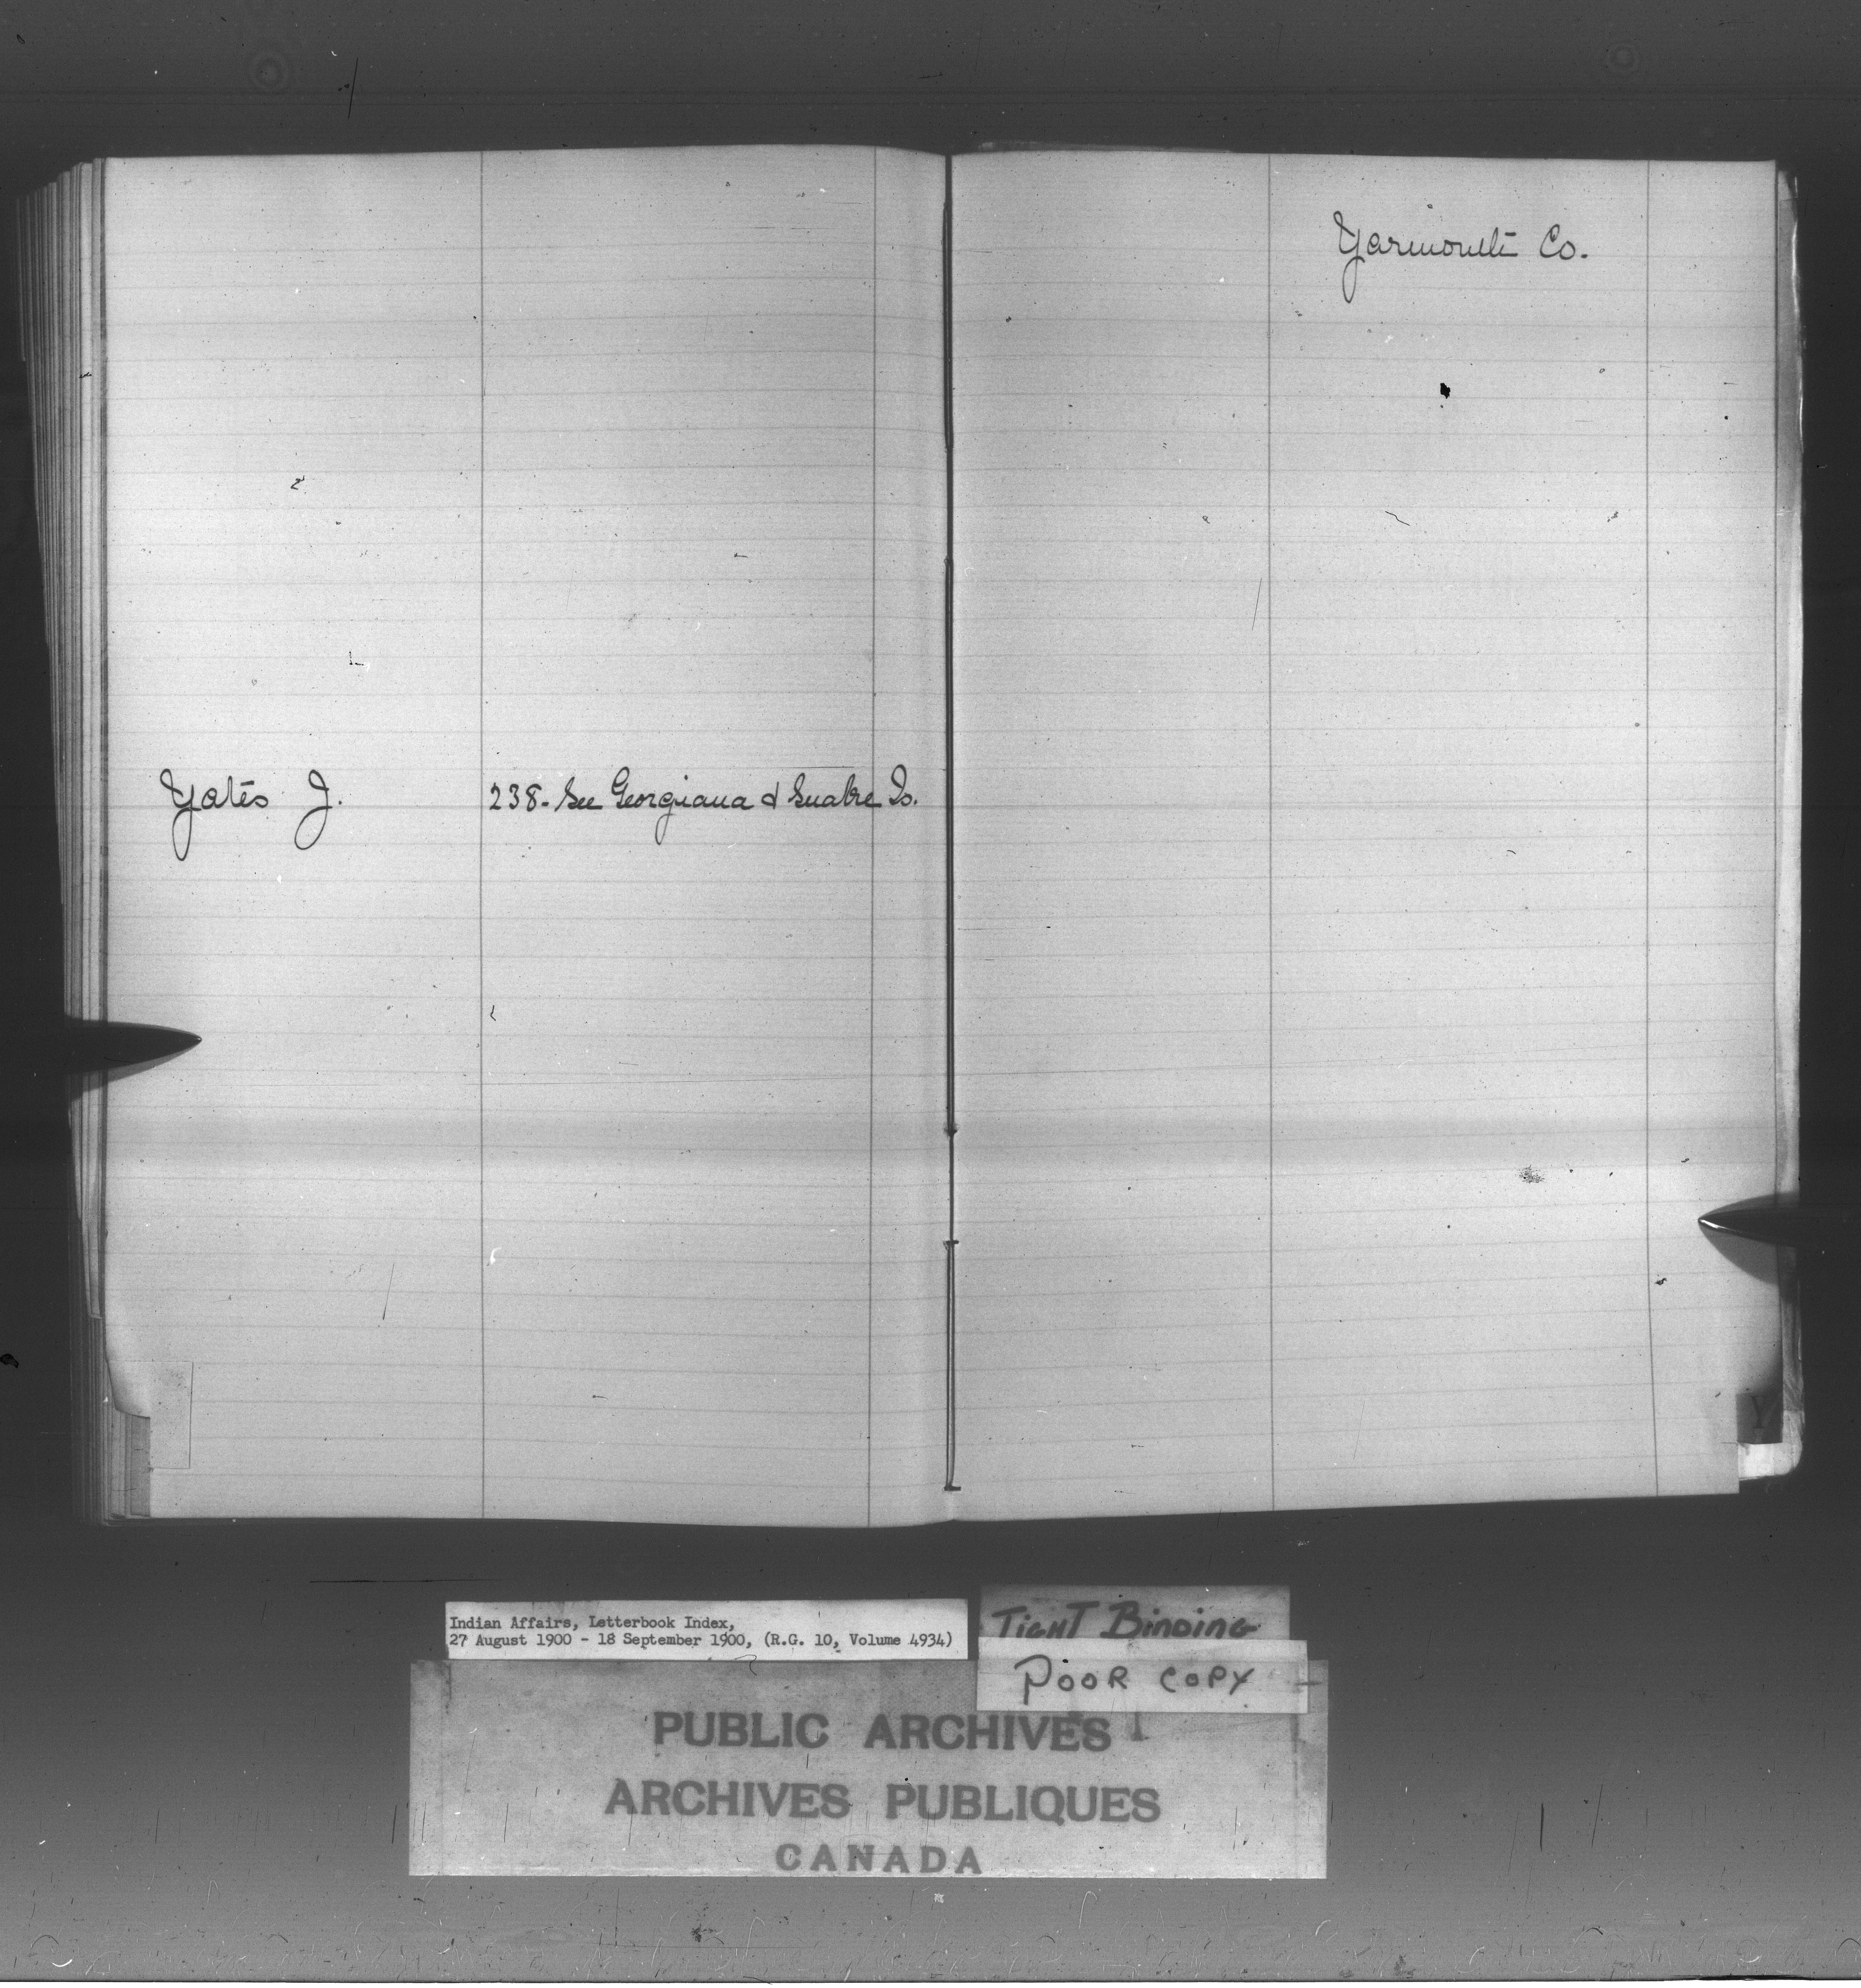 Yarmouth Co.
Yates J.
238. See Georgiana & Snake Is.
Y
Indian Affairs, Letterbook Index,
27 August 1900 - 18 September 1900, (R.G. 10, Volume 4934)
TIGHT BINDING
POOR COPY
PUBLIC ARCHIVES
ARCHIVES PUBLIQUES
CANADA